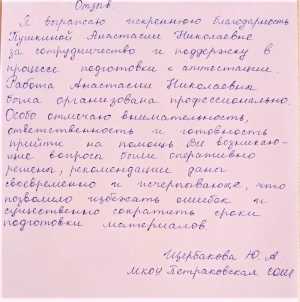 Отзыв.
Я выражаю искреннюю благодарность
Пушкиной Анастасии Николаевне
за сотрудничество и поддержку в
процессе подготовки к аттестации.
Работа Анастасии Николаевны
была организована профессионально.
Особо отмечаю внимательность,
ответственность и готовность
прийти на помощь Все возникаю-
щие вопросы были оперативно
решены, рекомендации даны
своевременно и исчерпывающе, что
позволило избежать ошибок и
существенно сократить сроки
подготовки материалов.
Щербакова Ю. А
МКОУ Петраковская СОШ